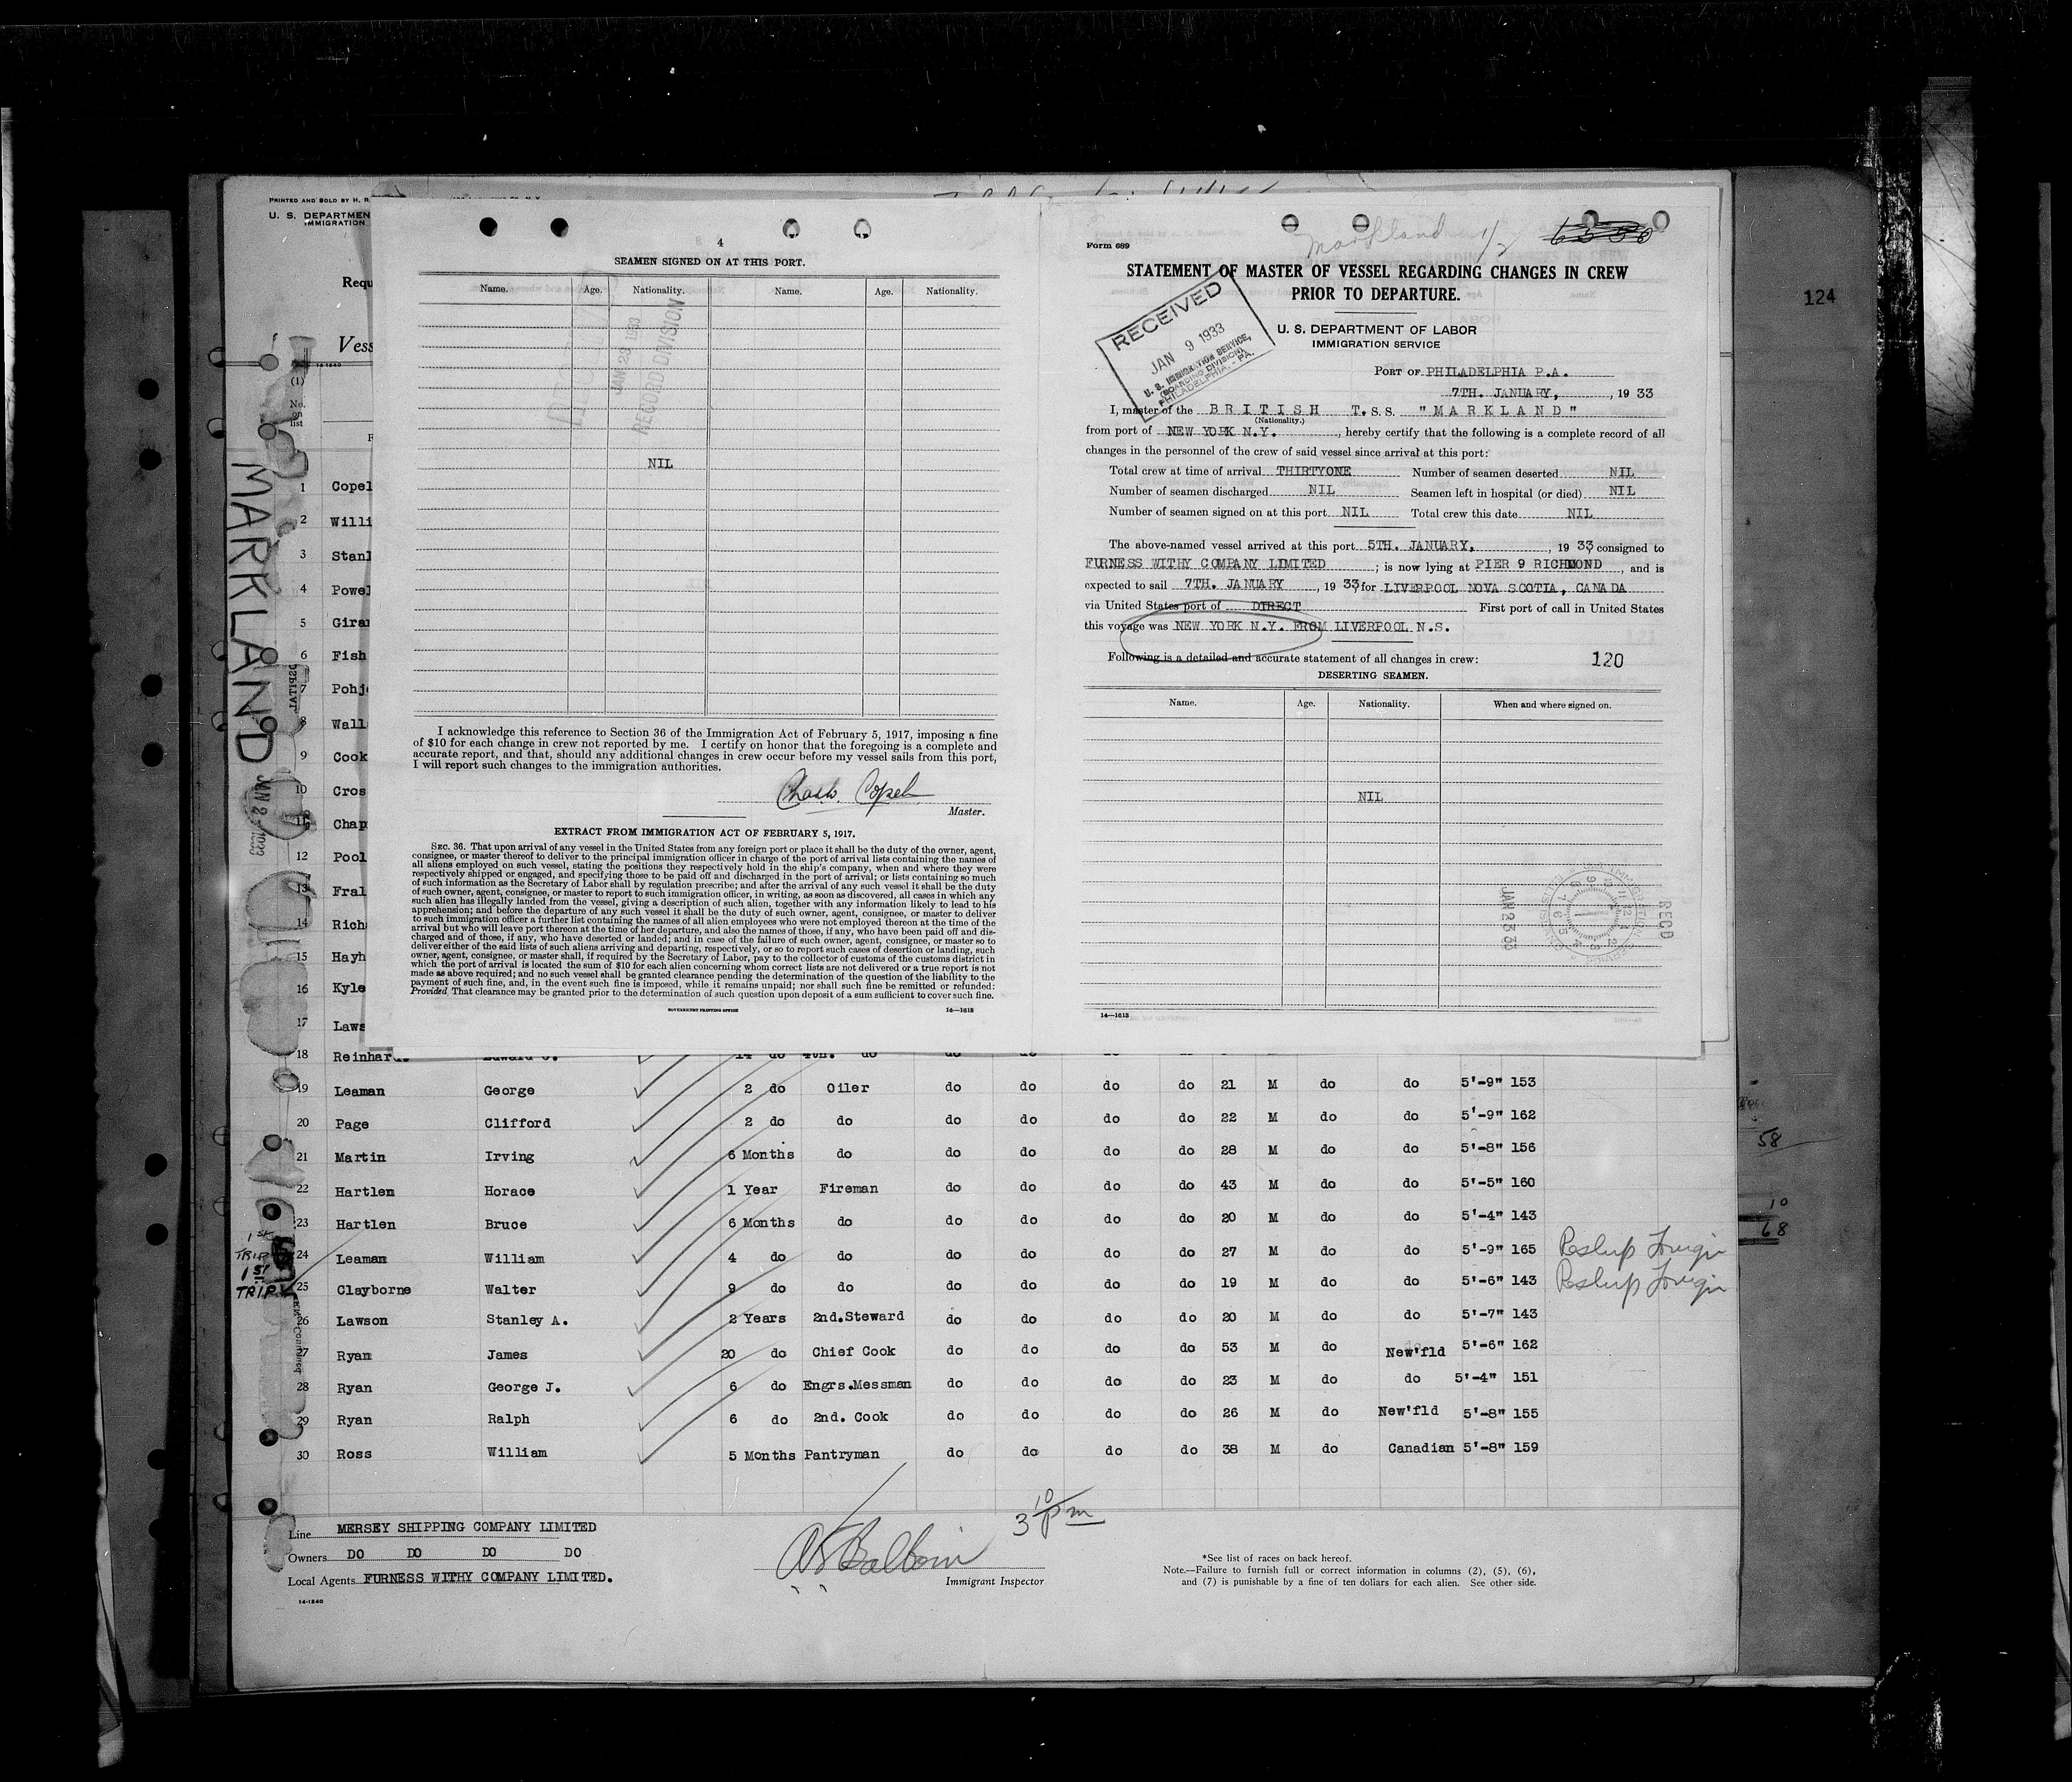 PRINTED AND SOLD BY H. R.
U. S. DEPARTMEN
IMMIGRATION
Requ
Vess
14-1240
(1)
No.
on
list
F
MARKLAND
1 Copel
2 Willi
3 Stanl
4 Powel
5 Girar
6 Fish
7 Pohj
8 Wall
9 Cook
10 Cros
11 Chap
12 Pool
13 Fral
14 Rich
15 Hayh
16 Kyle
17 Laws
4
SEAMEN SIGNED ON AT THIS PORT.
Name. Age. Nationality. Name. Age. Nationality.
JAN 23 1933
RECORD DIVISION
NIL
I acknowledge this reference to Section 36 of the Immigration Act of February 5, 1917, imposing a fine
of $10 for each change in crew not reported by me. I certify on honor that the foregoing is a complete and
accurate report, and that, should any additional changes in crew occur before my vessel sails from this port,
I will report such changes to the immigration authorities.
Master.
EXTRACT FROM IMMIGRATION ACT OF FEBRUARY 5, 1917.
SEC. 36. That upon arrival of any vessel in the United States from any foreign port or place it shall be the duty of the owner, agent,
consignee, or master thereof to deliver to the principal immigration officer in charge of the port of arrival lists containing the names of
all aliens employed on such vessel, stating the positions they respectively hold in the ship's company, when and where they were
respectively shipped or engaged, and specifying those to be paid off and discharged in the port of arrival; or lists containing so much
of such information as the Secretary of Labor shall by regulation prescribe; and after the arrival of any such vessel it shall be the duty
of such owner, agent, consignee, or master to report to such immigration officer, in writing, as soon as discovered, all cases in which any
such alien has illegally landed from the vessel, giving a description of such alien, together with any information likely to lead to his
apprehension; and before the departure of any such vessel it shall be the duty of such owner, agent, consignee, or master to deliver
to such immigration officer a further list containing the names of all alien employees who were not employed thereon at the time of the
arrival but who will leave port thereon at the time of her departure, and also the names of those, if any, who have been paid off and dis-
charged and of those, if any, who have deserted or landed; and in case of the failure of such owner, agent, consignee, or master so to
deliver either of the said lists of such aliens arriving and departing, respectively, or so to report such cases of desertion or landing, such
owner, agent, consignee, or master shall, if required by the Secretary of Labor, pay to the collector of customs of the customs district in
which the port of arrival is located the sum of $10 for each alien concerning whom correct lists are not delivered or a true report is not
made as above required; and no such vessel shall be granted clearance pending the determination of the question of the liability to the
payment of such fine, and, in the event such fine is imposed, while it remains unpaid; nor shall such fine be remitted or refunded:
Provided, That clearance may be granted prior to the determination of such question upon deposit of a sum sufficient to cover such fine.
GOVERNMENT PRINTING OFFICE 14—1613
Markland 1/7
Form 689
STATEMENT OF MASTER OF VESSEL REGARDING CHANGES IN CREW
PRIOR TO DEPARTURE.
U. S. DEPARTMENT OF LABOR
IMMIGRATION SERVICE
RECEIVED
JAN 9 1933
U. S. IMMIGRATION SERVICE,
(BOARDING DIVISION)
PHILADELPHIA, - PA.
PORT OF PHILADELPHIA P.A.
7TH. JANUARY, , 19 33
I, master of the BRITISH T.S.S. "MARKLAND"
(Nationality.)
from port of NEW YORK N.Y. , hereby certify that the following is a complete record of all
changes in the personnel of the crew of said vessel since arrival at this port:
Total crew at time of arrival THIRTYONE Number of seamen deserted NIL
Number of seamen discharged NIL Seamen left in hospital (or died) NIL
Number of seamen signed on at this port NIL Total crew this date NIL
The above-named vessel arrived at this port 5TH. JANUARY, , 19 33, consigned to
FURNESS WITHY COMPANY LIMITED ; is now lying at PIER 9 RICHMOND , and is
expected to sail 7TH. JANUARY , 19 33, for LIVERPOOL NOVA SCOTIA, CANADA
via United States port of DIRECT First port of call in United States
this voyage was NEW YORK N.Y. FROM LIVERPOOL N.S.
Following is a detailed and accurate statement of all changes in crew: 120
DESERTING SEAMEN.
Name. Age. Nationality. When and where signed on.
NIL
JAN 23 33
RECD
14—1613
124
18 Reinhar Edward J. 14 do 4th. do
19 Leaman George 2 do Oiler do do do do 21 M do do 5'-9" 153
20 Page Clifford 2 do do do do do do 22 M do do 5'-9" 162
21 Martin Irving 6 Months do do do do do 28 M do do 5'-8" 156
22 Hartlen Horace 1 Year Fireman do do do do 43 M do do 5'-5" 160
23 Hartlen Bruce 6 Months do do do do do 20 M do do 5'-4" 143
1st TRIP 24 Leaman William 4 do do do do do do 27 M do do 5'-9" 165
1st TRIP 25 Clayborne Walter 9 do do do do do do 19 M do do 5'-6" 143
26 Lawson Stanley A. 2 Years 2nd.Steward do do do do 20 M do do 5'-7" 143
27 Ryan James 20 do Chief Cook do do do do 53 M do New'fld 5'-6" 162
28 Ryan George J. 6 do Engrs.Messman do do do do 23 M do do 5'-4" 151
29 Ryan Ralph 6 do 2nd. Cook do do do do 26 M do New'fld 5'-8" 155
30 Ross William 5 Months Pantryman do do do do 38 M do Canadian 5'-8" 159
58
10
68
3 10 pm
Line MERSEY SHIPPING COMPANY LIMITED
Owners DO DO DO DO
Local Agents FURNESS WITHY COMPANY LIMITED.
14-1240
Immigrant Inspector
*See list of races on back hereof.
Note.—Failure to furnish full or correct information in columns (2), (5), (6),
and (7) is punishable by a fine of ten dollars for each alien. See other side.